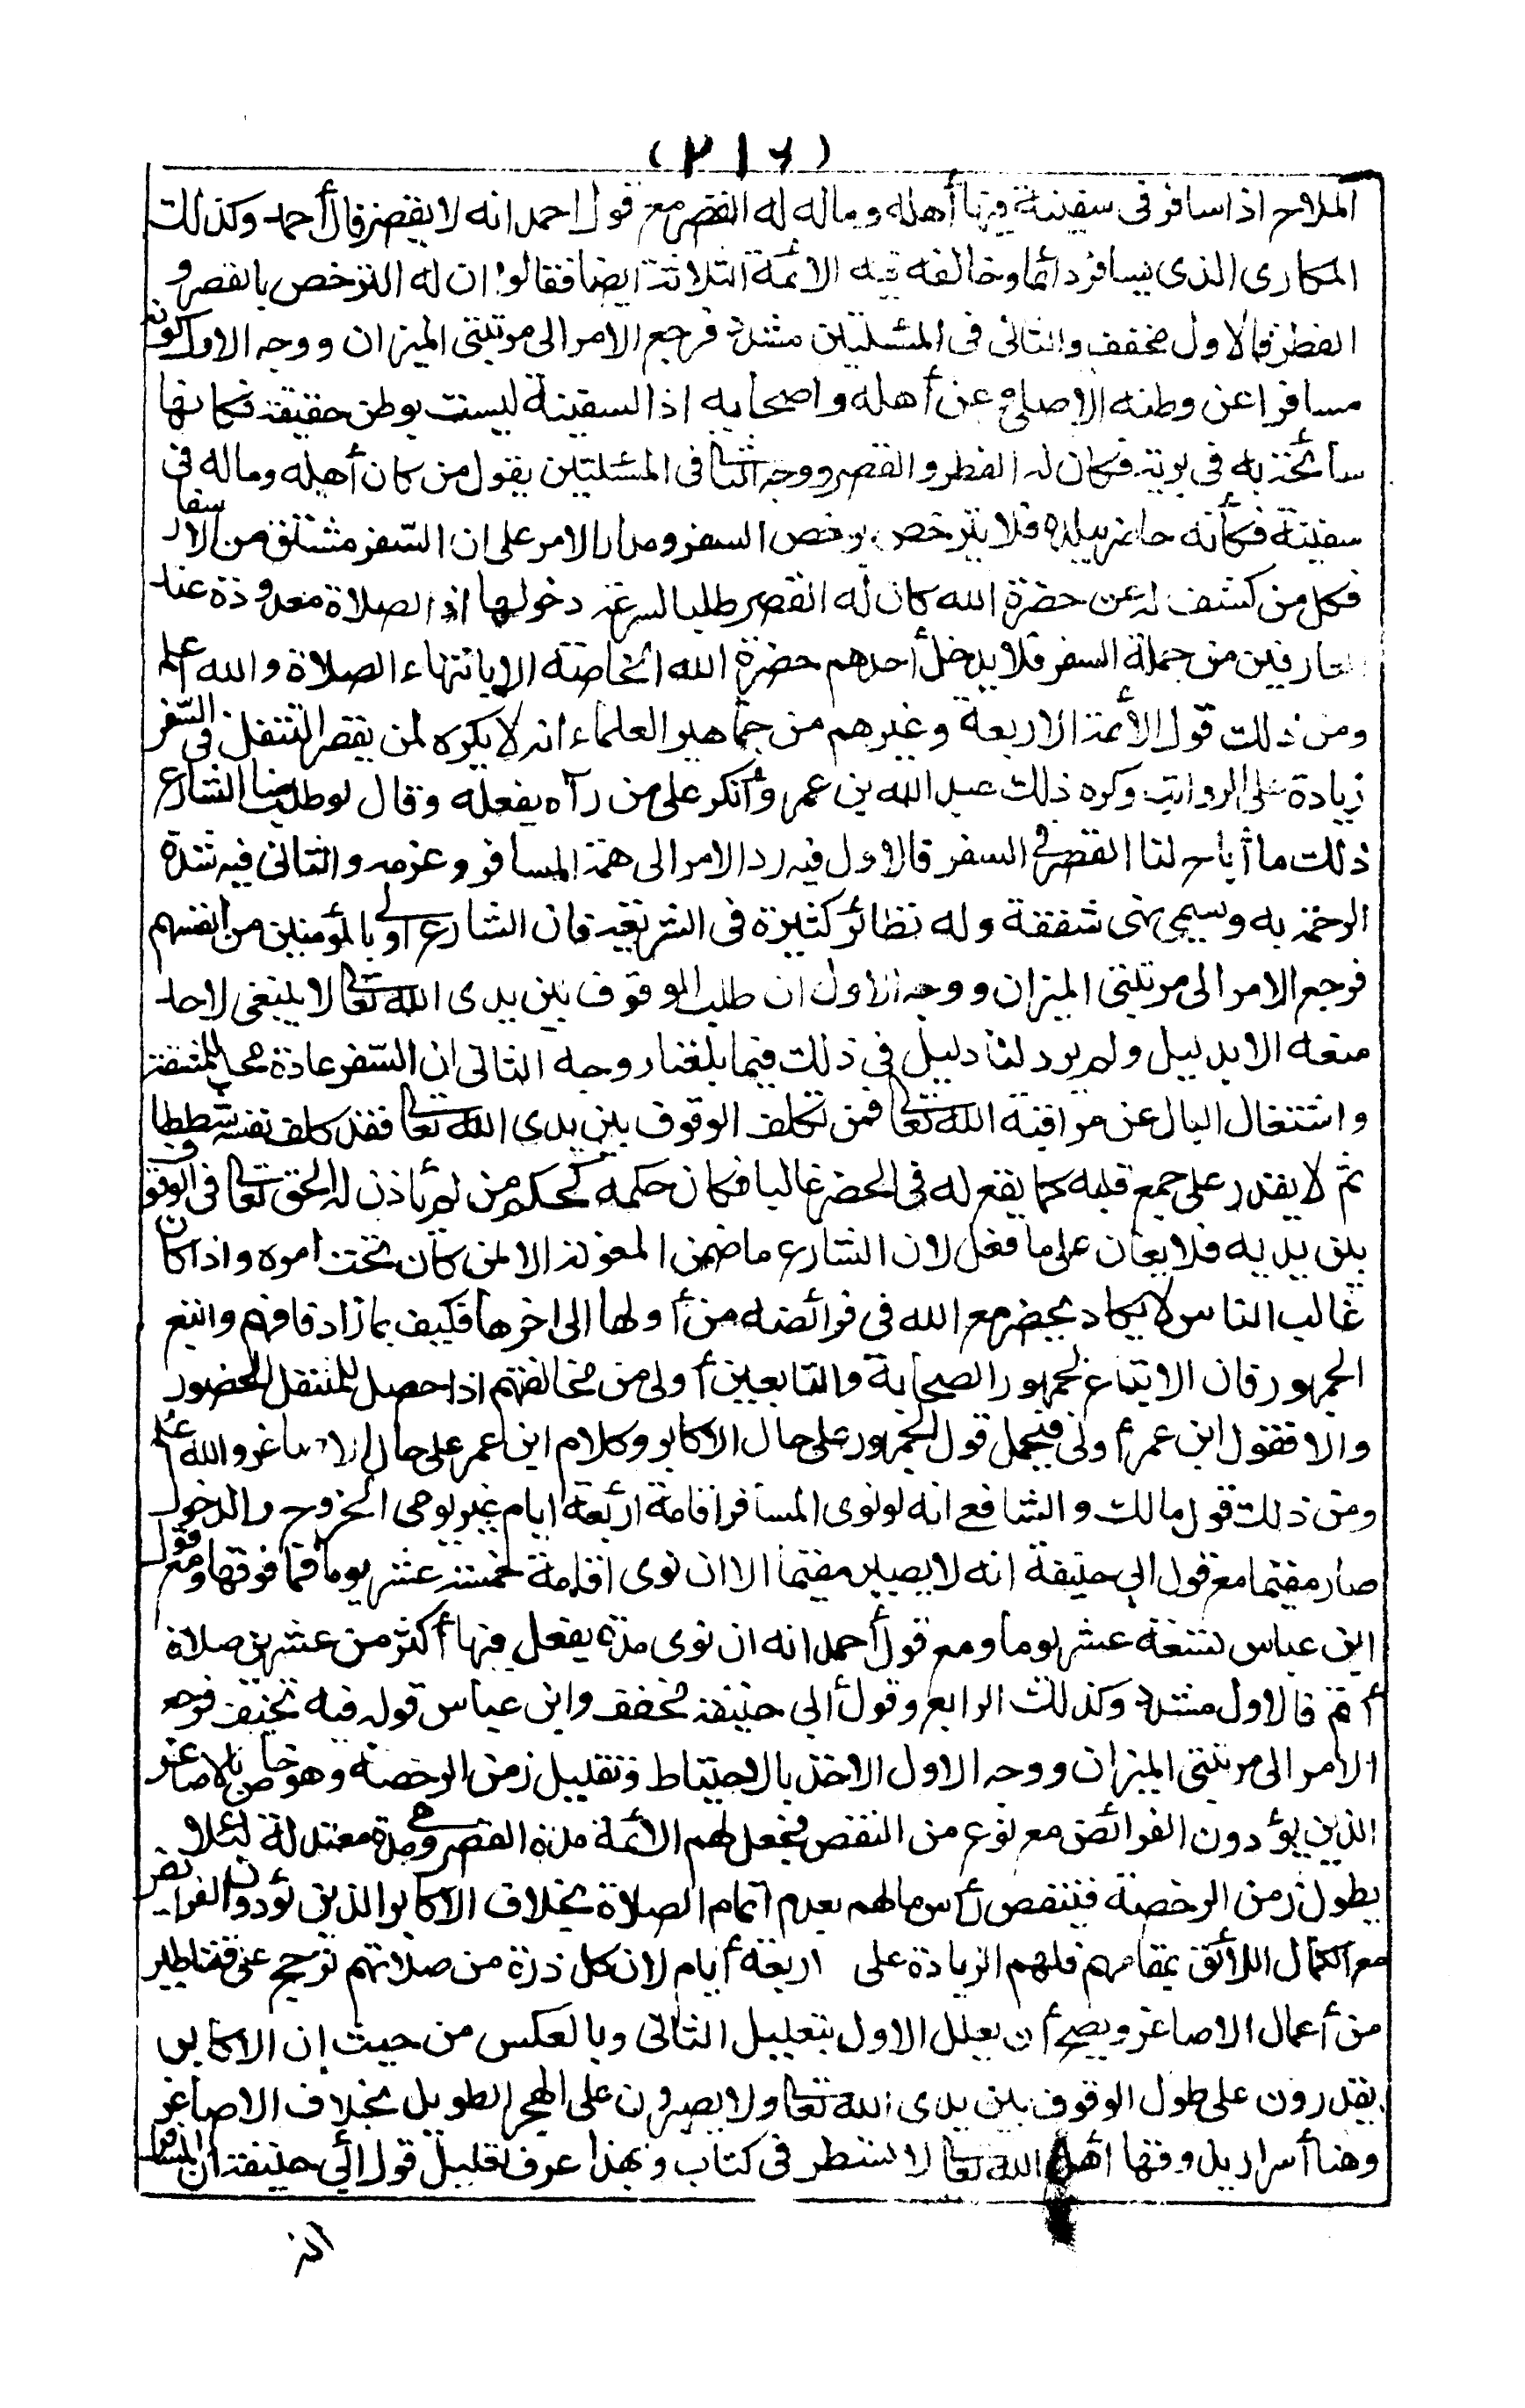 (٢١٦)
الملاح اذا سافر فى سفينة فيها أهله وماله له القصر مع قول احمد انه لا يقصر قال أحمد وكذلك
المكارى الذى يسافر دائما وخالفه فيه الائمة الثلاثة ايضا فقالوا ان له الترخص بالقصر و
الفطر فالاول مخفف والثانى فى المسئلتين مشدد فرجع الامر الى مرتبتى الميزان ووجه الاول كونه
مسافرا عن وطنه الاصلى وعن أهله واصحابه اذ السفينة ليست بوطن حقيقة فكانها
سائحة به فى برية فكان له الفطر والقصر ووجه الثانى فى المسئلتين يقول من كان أهله وماله فى
سفينة فكأنه حاضر ببلده فلا يترخص برخص السفر ومدار الامر على ان السّفر مشتق من الاسفار
فكل من كشف له عن حضرة الله كان له القصر طلبا لسرعة دخولها اذ الصلاة معدودة عند
العارفين من جملة السفر فلا يدخل أحدهم حضرة الله الخاصة الا بانتهاء الصلاة والله اعلم
ومن ذلك قول الأئمة الاربعة وغيرهم من جماهير العلماء انه لا يكره لمن يقصر التنفل فى السّفر
زيادة على الرواتب وكره ذلك عبد الله بن عمر وأنكر على من رآه يفعله وقال لو طلب منا الشارع
ذلك ما أباح لنا القصر فى السفر فالاول فيه رد الامر الى همة المسافر وعزمه والثانى فيه شدة
الرحمة به ويسمى نهى شفقة وله نظائر كثيرة فى الشريعة فان الشارع أولى بالمؤمنين من انفسهم
فرجع الامر الى مرتبتى الميزان ووجه الاول ان طلب الوقوف بين يدى الله تعالى لا ينبغى لاحد
منعه الا بدليل ولم يرد لنا دليل فى ذلك فيما بلغنا ووجه الثانى ان السّفر عادة محل للمشقة
واشتغال البال عن مراقبة الله تعالى فمن تكلف الوقوف بين يدى الله تعالى فقد كلف نفسه شططا
ثم لا يقدر على جمع قلبه كما يقع له فى الحضر غالبا فكان حكمه كحكم من لم يأذن له الحق تعالى فى الوقوف
بين يديه فلا يعان على ما فعل لان الشارع ما ضمن المعونة الا لمن كان تحت امره واذا كان
غالب الناس لا يكاد يحضر مع الله فى فرائضه من أولها الى اخرها فكيف بما زاد فافهم واتبع
الجمهور فان الاتباع لجمهور الصحابة والتابعين أولى من مخالفتهم اذا حصل للمتنفل الحضور
والا فقول ابن عمر أولى فيحمل قول الجمهور على حال الاكابر وكلام ابن عمر على حال الاصاغر والله اعلم
ومن ذلك قول مالك والشافعى انه لو نوى المسافر اقامة اربعة ايام غير يومى الخروج والدخول
صار مقيما مع قول ابى حنيفة انه لا يصير مقيما الا ان نوى اقامة خمسة عشر يوما فما فوقها ومع قول
ابن عباس تسعة عشر يوما ومع قول أحمد انه ان نوى مدة يفعل فيها أكثر من عشرين صلاة
أتم فالاول مشدد وكذلك الرابع وقول أبى حنيفة مخفف وابن عباس قوله فيه تخفيف فرجع
الامر الى مرتبتى الميزان ووجه الاول الاخذ بالاحتياط وتقليل زمن الرخصة وهو خاص بالاصاغر
الذين يؤدون الفرائض مع نوع من النقص فجعل لهم الائمة مدة القصر وهى مدة معتدلة لئلا
يطول زمن الرخصة فينقص رأس مالهم بعدم اتمام الصلاة بخلاف الاكابر الذين يؤدون الفرائض
مع الكمال اللائق بمقامهم فلهم الزيادة على اربعة أيام لان كل ذرة من صلاتهم ترجح على قناطير
من أعمال الاصاغر ويصح أن يعلل الاول بتعليل الثانى وبالعكس من حيث إن الاكابر
يقدرون على طول الوقوف بين يدى الله تعالى ولا يصبرون على الهجر الطويل بخلاف الاصاغر
وهنا أسرار يذوقها اهل الله تعالى لا تسطر فى كتاب وبهذا عرف تعليل قول أبى حنيفة ان المسافر